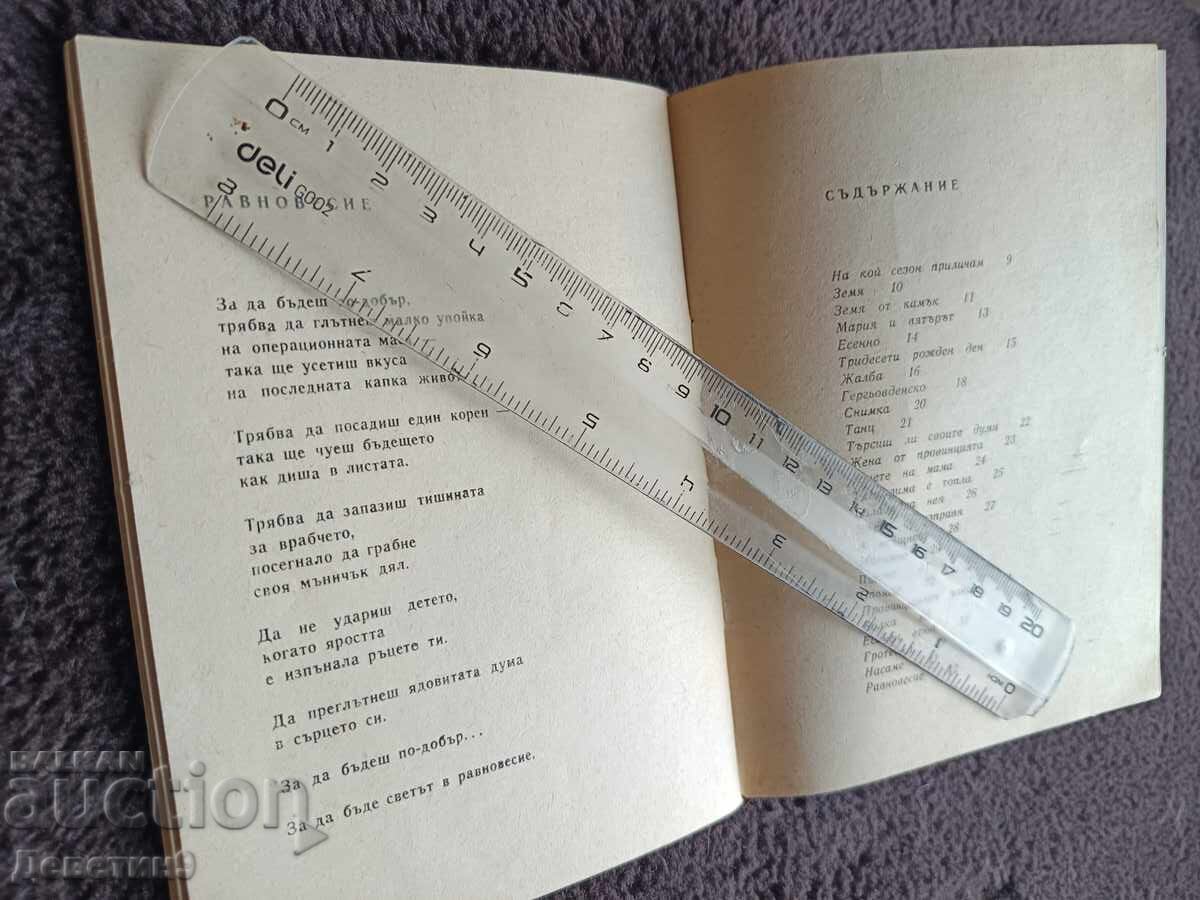 РАВНОВЕСИЕ
За да бъдеш по-добър,
трябва да глътнеш малко упойка
на операционната маса
така ще усетиш вкуса
на последната капка живот.
Трябва да посадиш един корен —
така ще чуеш бъдещето
как диша в листата.
Трябва да запазиш тишината
за врабчето,
посегнало да грабне
своя мъничък дял.
Да не удариш детето,
когато яростта
е изпънала ръцете ти.
Да преглътнеш ядовитата дума
в сърцето си.
За да бъдеш по-добър...
За да бъде светът в равновесие.
СЪДЪРЖАНИЕ
На кой сезон приличам 9
Земя 10
Земя от камък 11
Мария и вятърът 13
Есенно 14
Тридесети рожден ден 15
Жалба 16
Гергьовденско 18
Снимка 20
Танц 21
Търсиш ли своите думи 22
Жена от провинцията 23
на мама 24
зима е топла 25
нея 26
27
28
Насаме
Равновесие
0 СМ 1 2 3 4 5 6 7 8 9 10 11 12 13 14 15 16 17 18 19 20
deli G002
8 7 6 5 4 3 2 1 0
BALKAN
auction
Деветин9